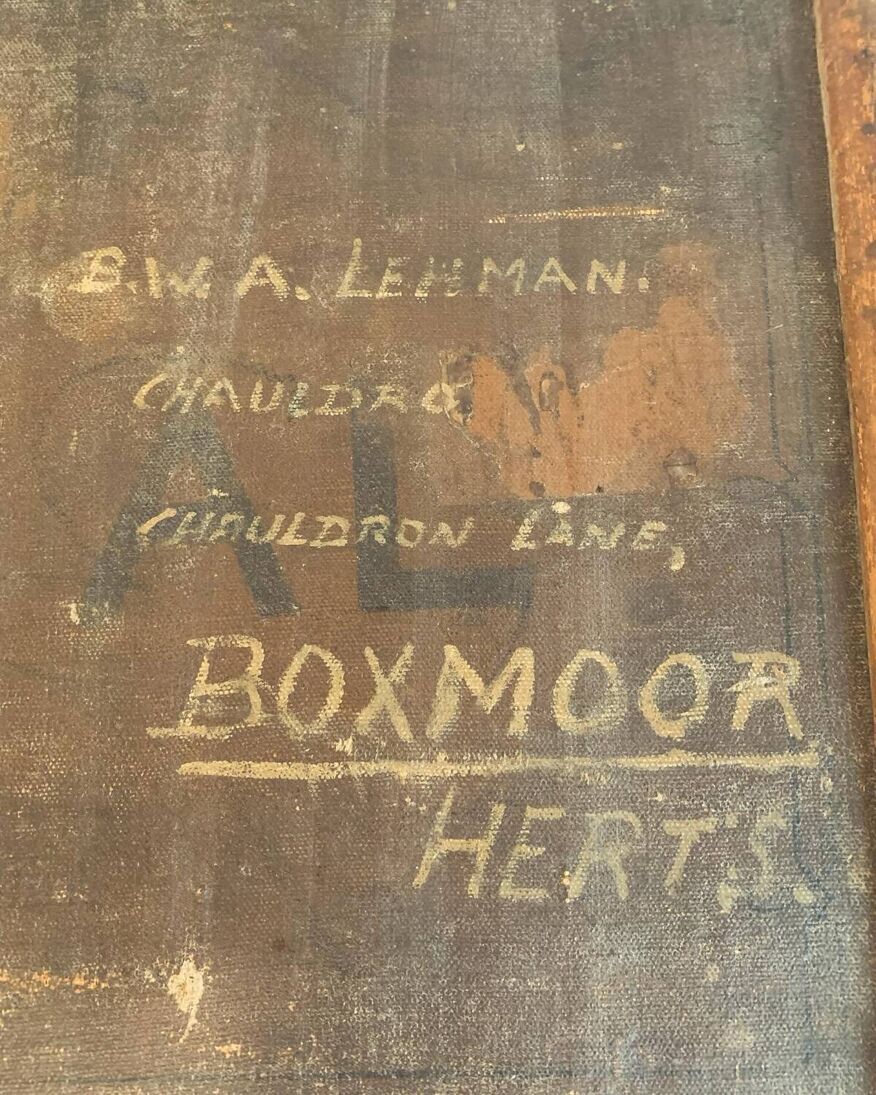 B.W.A. LEHMAN.
CHAULDRO
CHAULDRON LANE,
AL
BOXMOOR
HERTS.